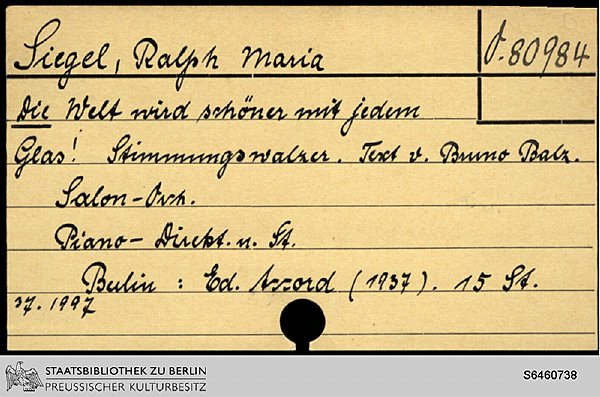 Siegel, Ralph Maria
O.80984
Die Welt wird schöner mit jedem
Glas! Stimmungswalzer. Text v. Bruno Balz.
Salon-Orch.
Piano-Direkt. u. St.
Berlin : Ed. Accord (1937). 15 St.
37. 1997
STAATSBIBLIOTHEK ZU BERLIN
PREUSSISCHER KULTURBESITZ
S6460738